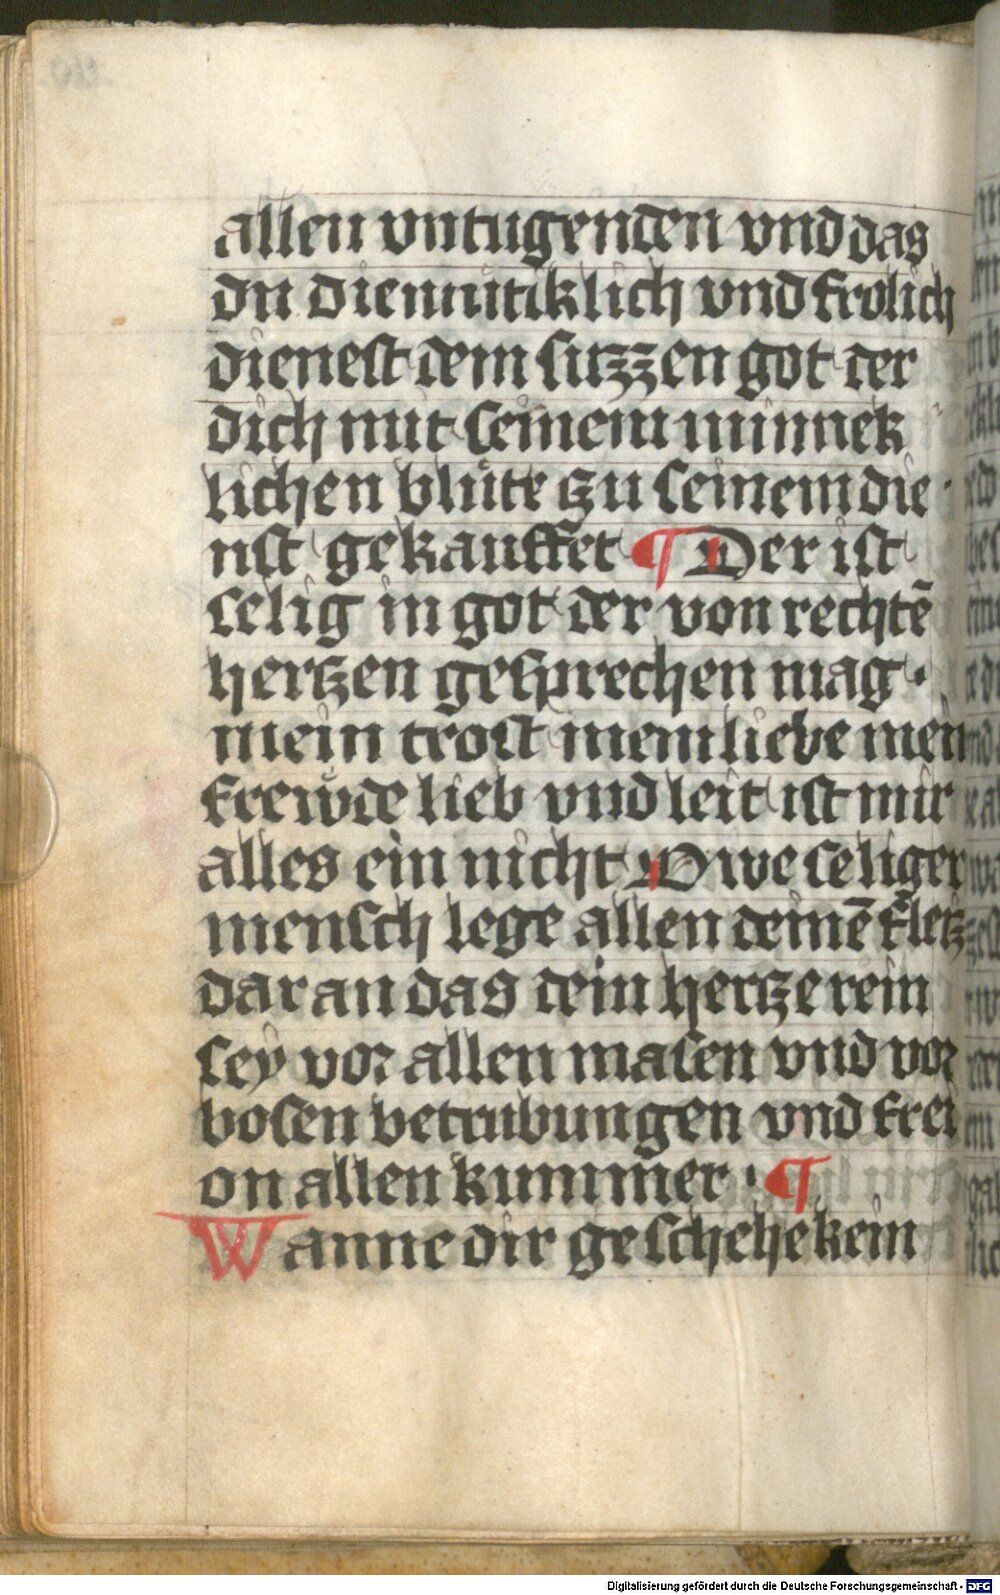 allen vntugenden vnd das
du diemütiklich vnd frolich
dienest dem suzzen got der
dich mit seinem minnek
lichen blüte zu seinem die
nst gekauffet ¶ Der ist
selig in got der von rechtē
hertzen gesprechen mag ·
mein trost mein liebe mein
frewde lieb vnd leit ist mir
alles ein nicht Owe seliger
mensch lege allen deinē fleiz
dar an das dein hertze rein
sey vor allen masen vnd vor
bosen betrubungen vnd frei
on allen kummer · ¶
Wanne dir geschehe kein
Digitalisierung gefördert durch die Deutsche Forschungsgemeinschaft - DFG